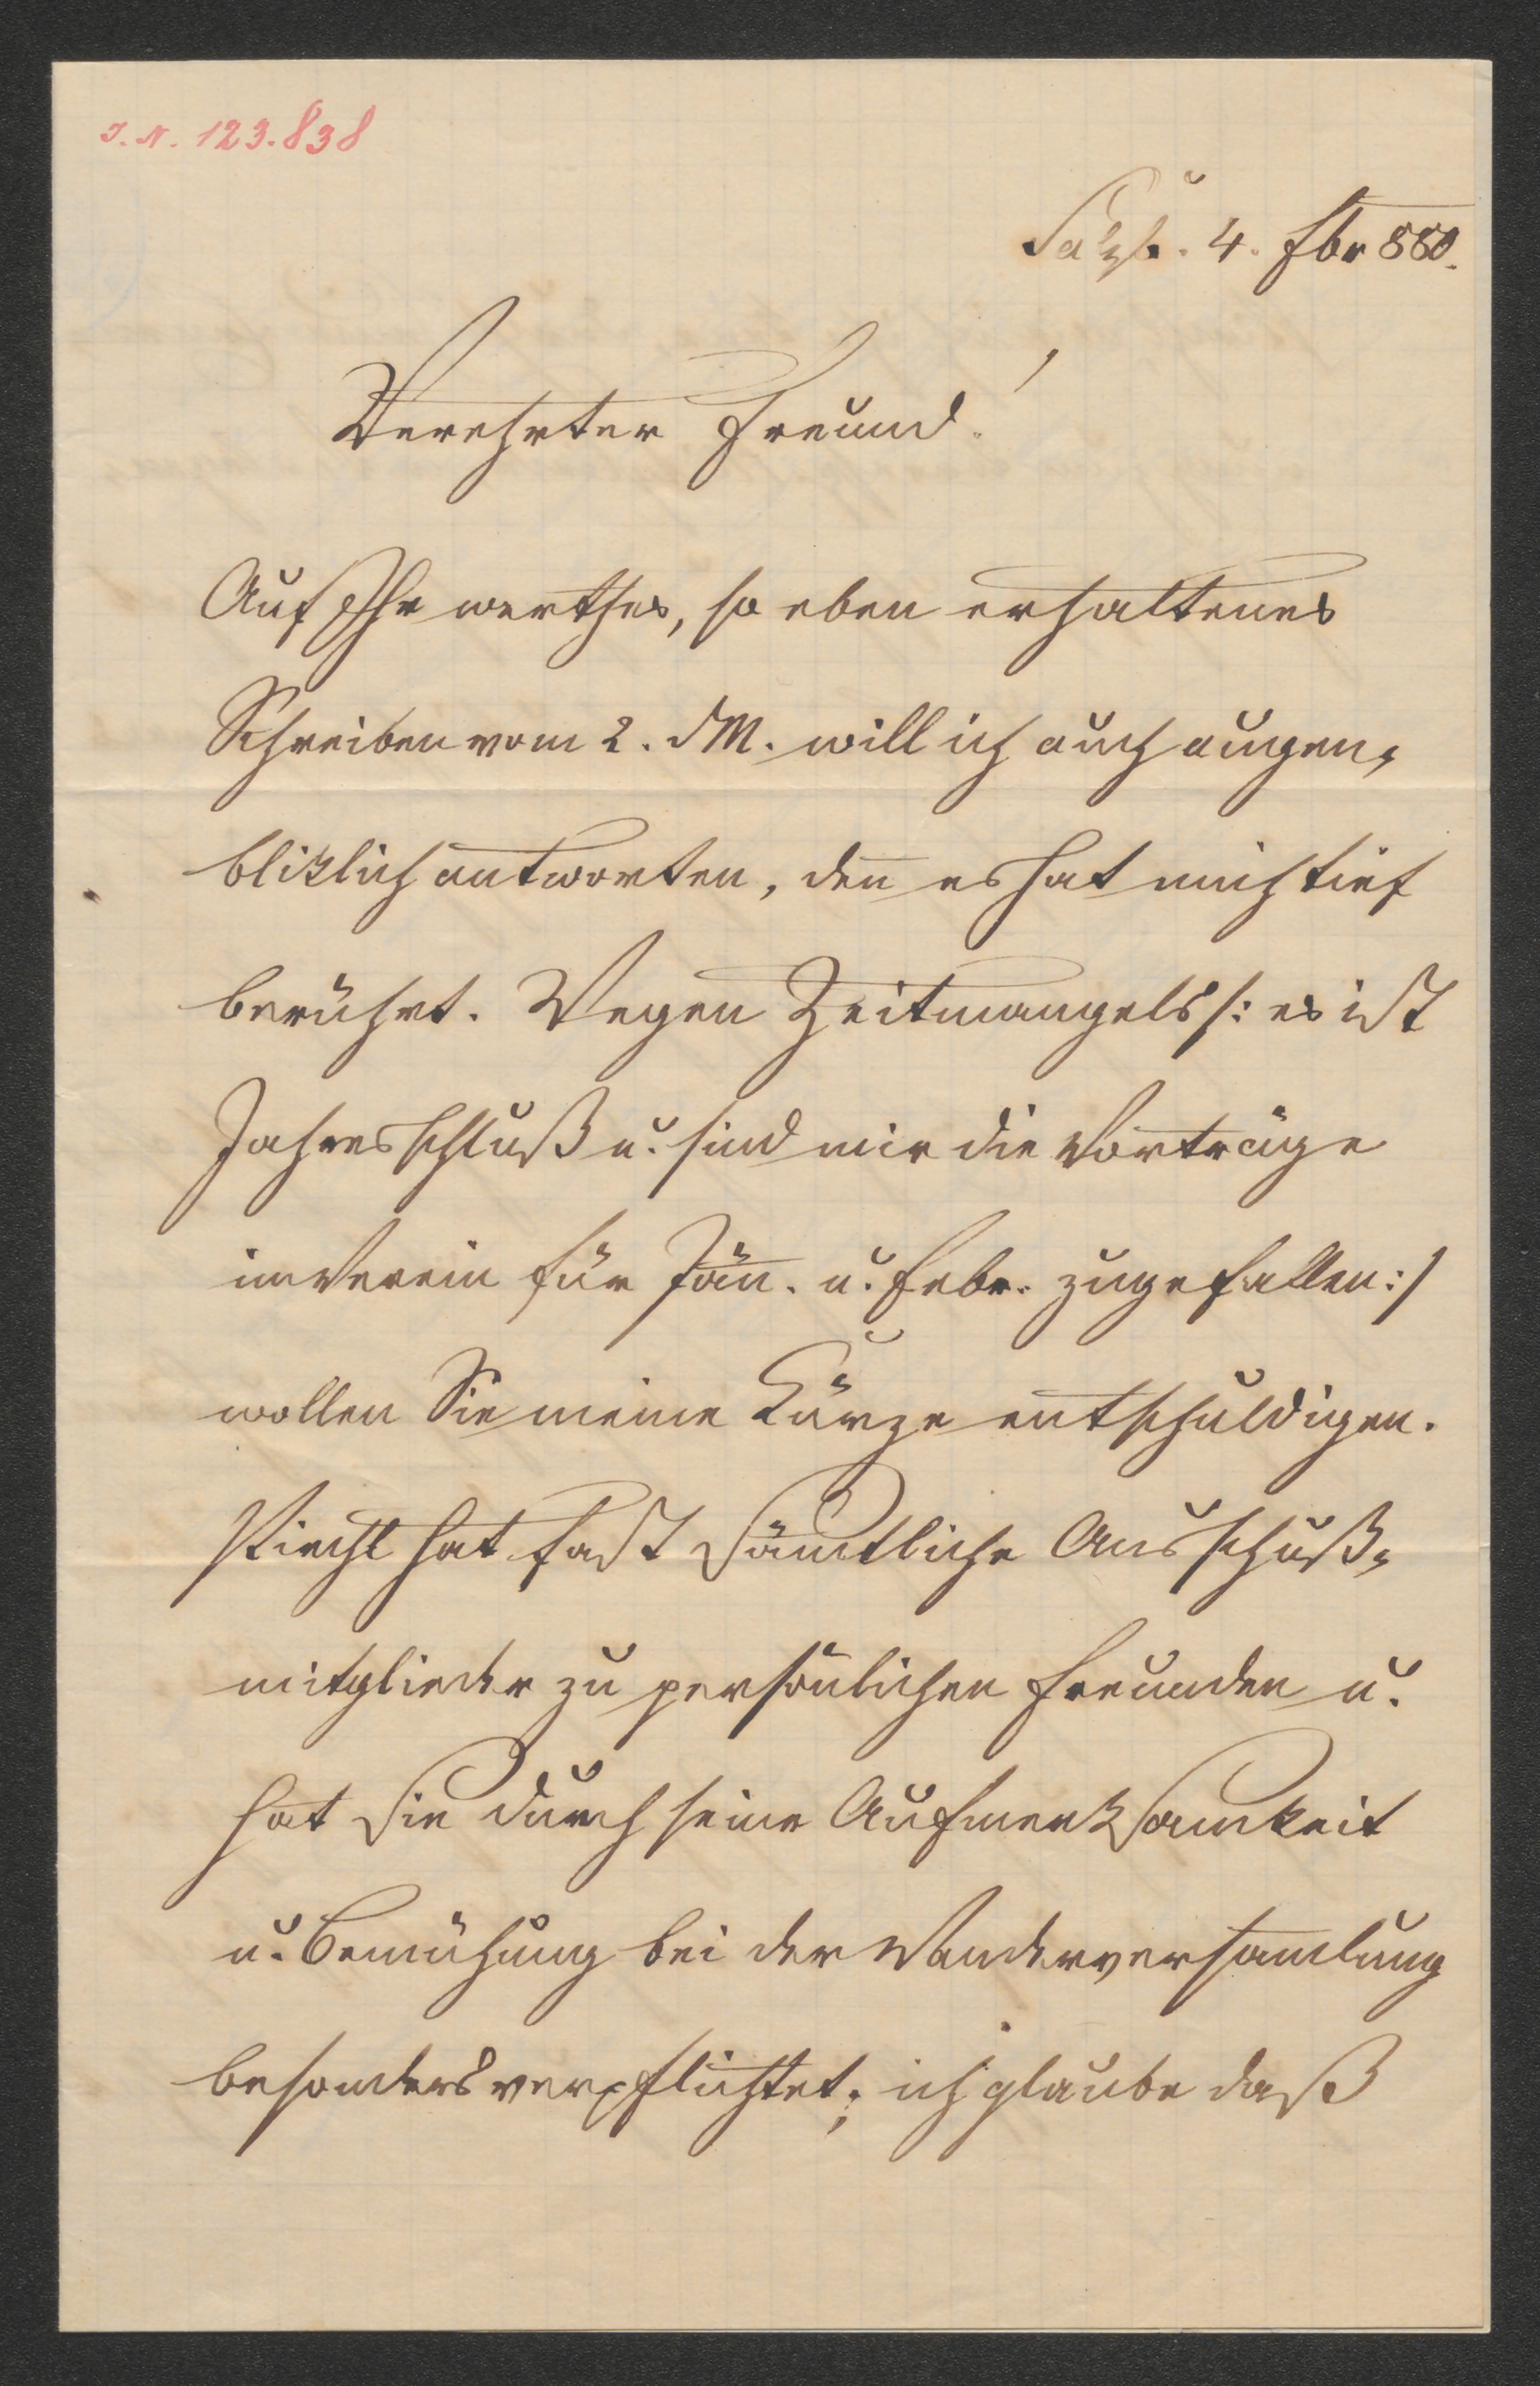 I. N. 123.838
Salzb. 4. Fbr 880.
Verehrter Freund!
Auf Ihr werthes, so eben erhaltenes
Schreiben vom 2. dM. will ich auch augen-
bliklich antworten, den̅ es hat mich tief
berührt. Wegen Zeitmangels /: es ist
Jahresschluß u. sind mir die Vorträge
im Verein für Jän. u. Febr. zugefallen :/
wollen Sie meine Kürze entschuldigen.
hat fast säm̅tliche Ausschuß-
mitglieder zu persönlichen Freunden u.
hat sie durch seine Aufmerksamkeit
u. Bemühung bei der Wanderversam̅lung
besonders verpflichtet; ich glaube daß